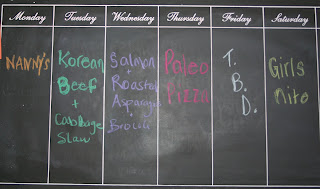 Monday Tuesday Wednesday Thursday Friday Saturday
NANNY'S
Korean
Beef
+
Cabbage
Slaw
Salmon
+
Roasted
Asparagus
+
Paleo
Pizza
T.
B.
D.
Girls
nite